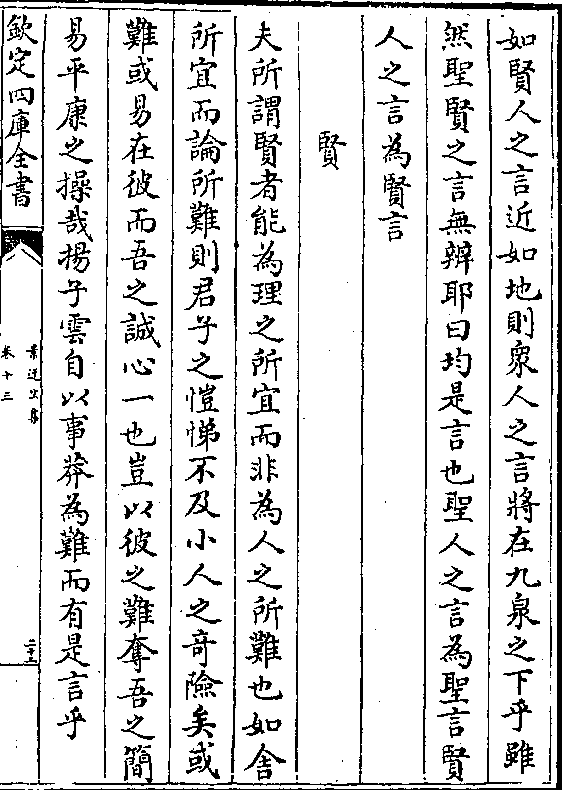 如賢人之言近如地則衆人之言將在九泉之下乎雖
然聖賢之言無辨耶曰均是言也聖人之言為聖言賢
人之言為賢言
賢
夫所謂賢者能為理之所宜而非為人之所難也如舍
所宜而論所難則君子之愷悌不及小人之奇險矣或
難或易在彼而吾之誠心一也豈以彼之難奪吾之簡
易平康之操哉揚子雲自以事莽為難而有是言乎
欽定四庫全書
景迂生集
卷十三
二十二